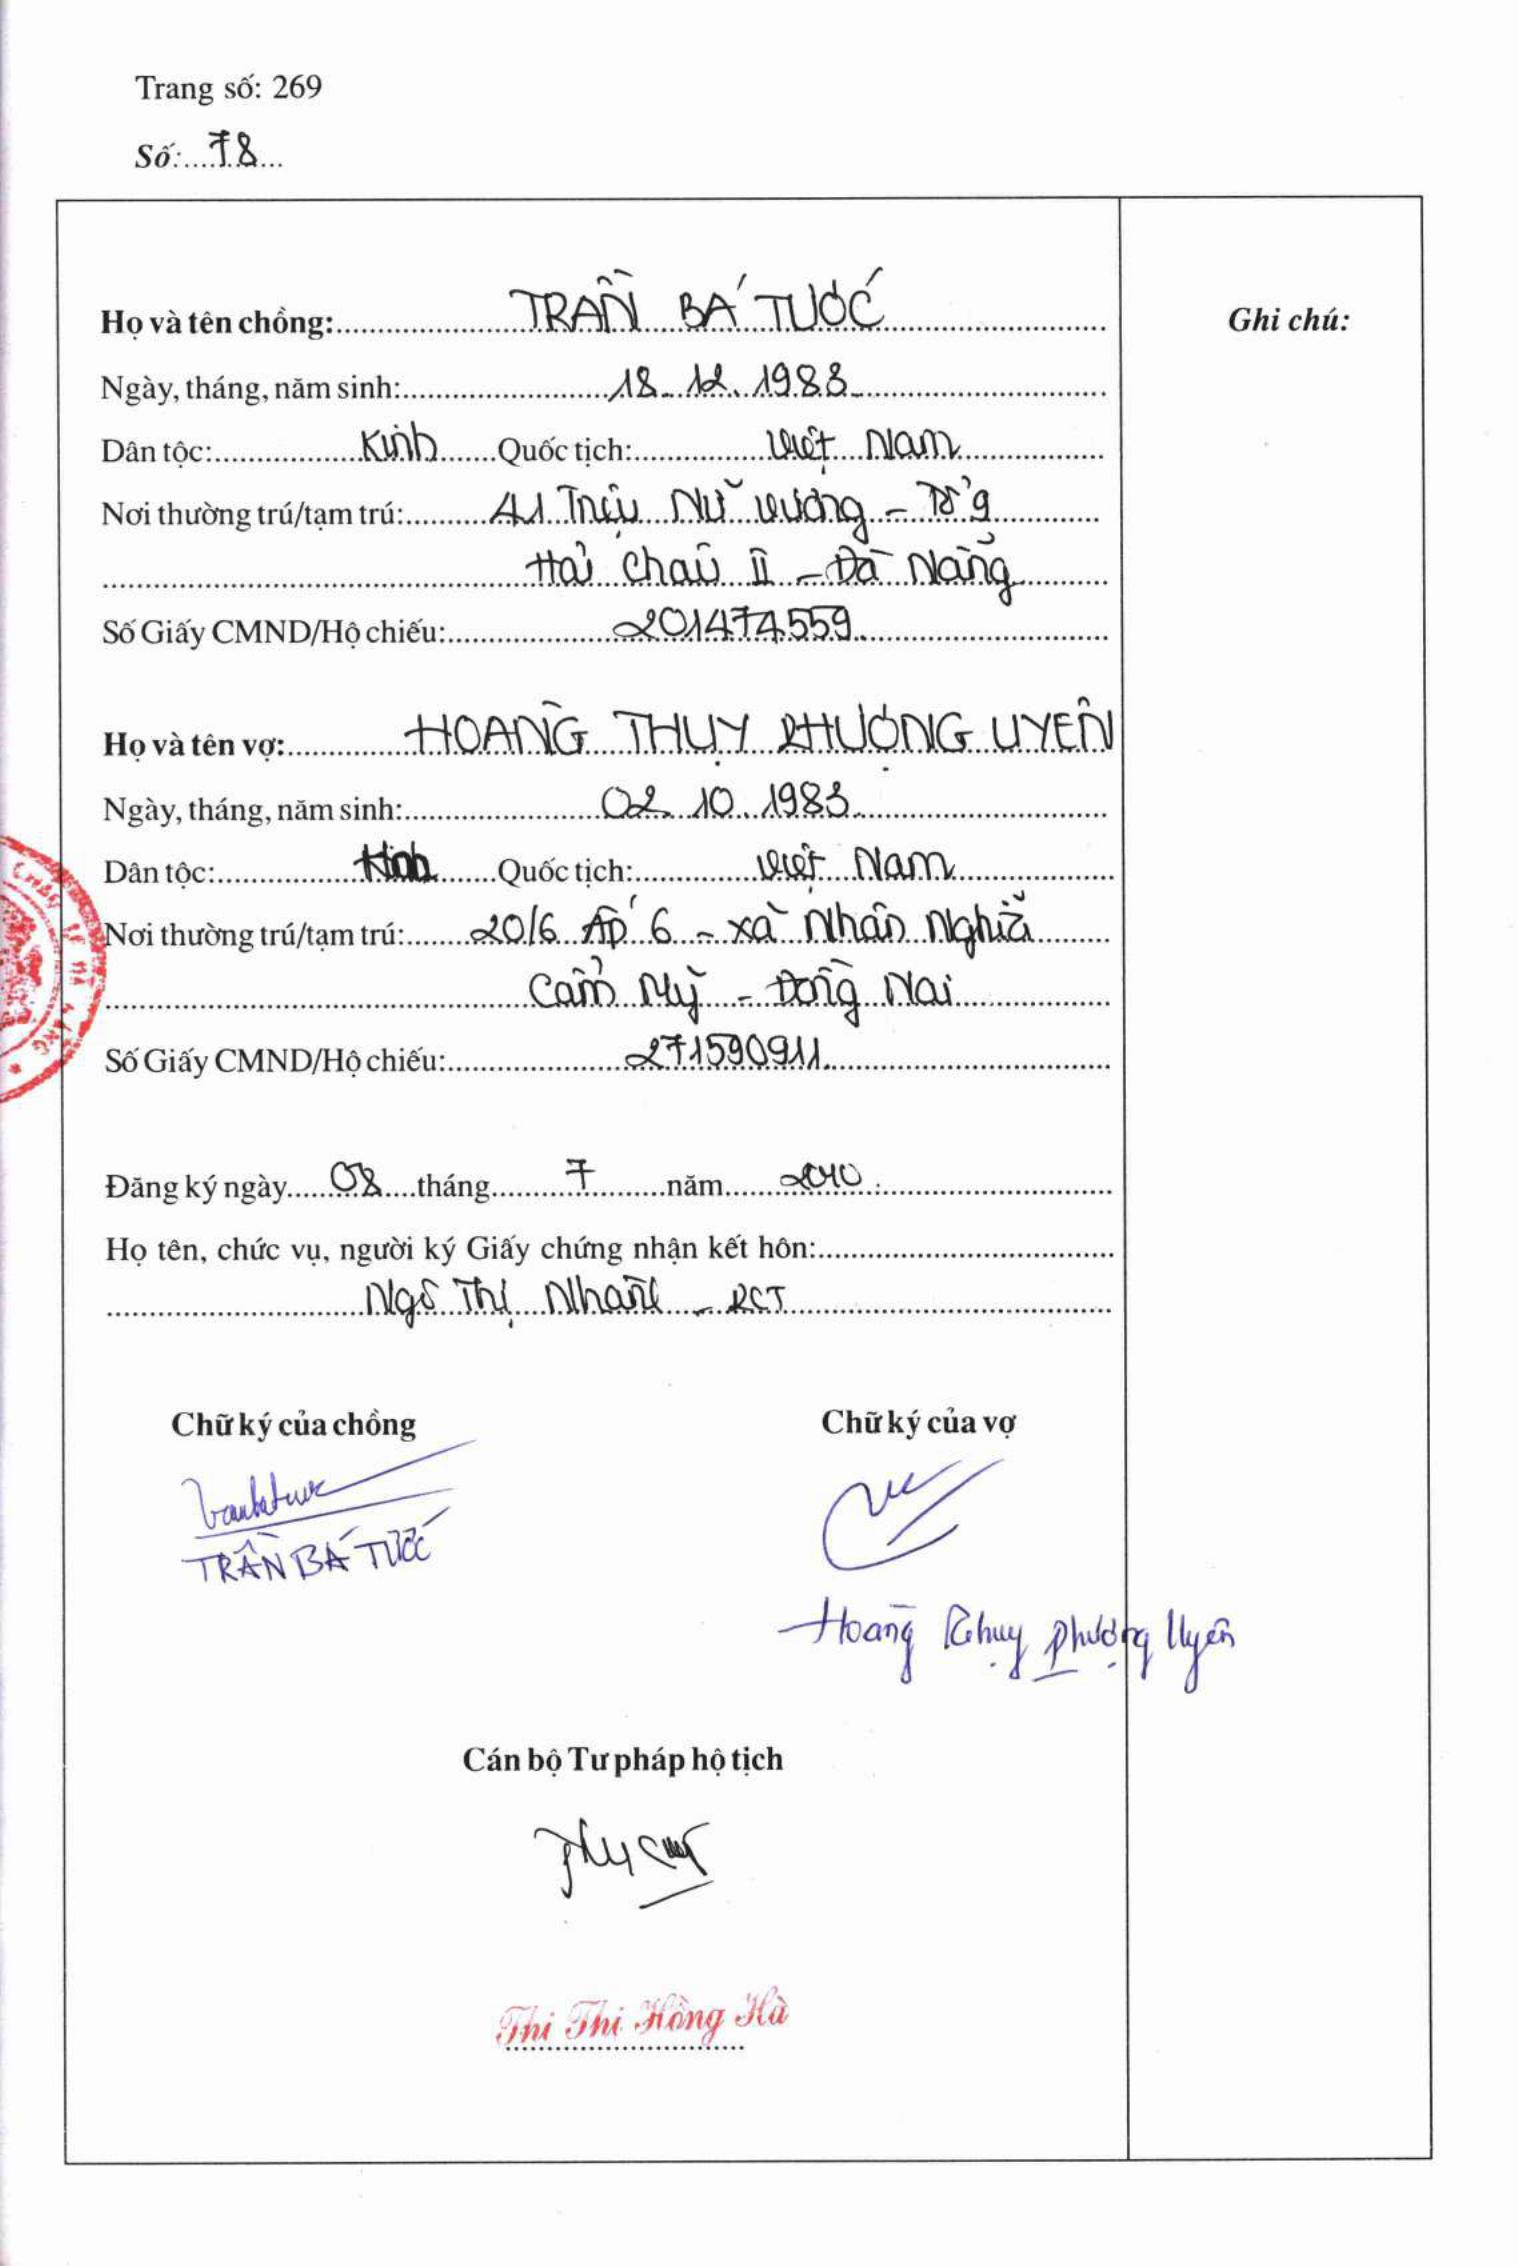 Trang số: 269
Số: 78
Họ và tên chồng: TRẦN BÁ TƯỚC
Ghi chú:
Ngày, tháng, năm sinh: 18.12.1983
Dân tộc: Kinh Quốc tịch: Việt Nam
Nơi thường trú/tạm trú: 41 Triệu Nữ Vương - Tổ 9
Hải Châu II - Đà Nẵng
Số Giấy CMND/Hộ chiếu: 201474559
Họ và tên vợ: HOÀNG THỤY PHƯỢNG UYÊN
Ngày, tháng, năm sinh: 02.10.1983
Dân tộc: Kinh Quốc tịch: Việt Nam
Nơi thường trú/tạm trú: 20/6 Ấp 6 - xã Nhân Nghĩa
Cẩm Mỹ - Đồng Nai
Số Giấy CMND/Hộ chiếu: 271590911
Đăng ký ngày 08 tháng 7 năm 2010
Họ tên, chức vụ, người ký Giấy chứng nhận kết hôn:
Ngô Thị - PCT
Chữ ký của chồng
Chữ ký của vợ
TRẦN BÁ TƯỚC
Hoàng Thụy Phượng Uyên
Cán bộ Tư pháp hộ tịch
Thi Thi Hồng Hà